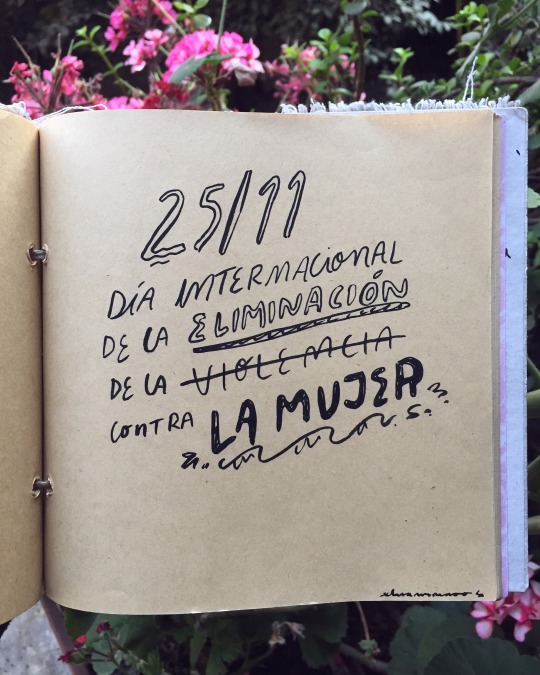 25/11
DÍA INTERNACIONAL
DE LA ELIMINACIÓN
DE LA VIOLENCIA
CONTRA LA MUJER